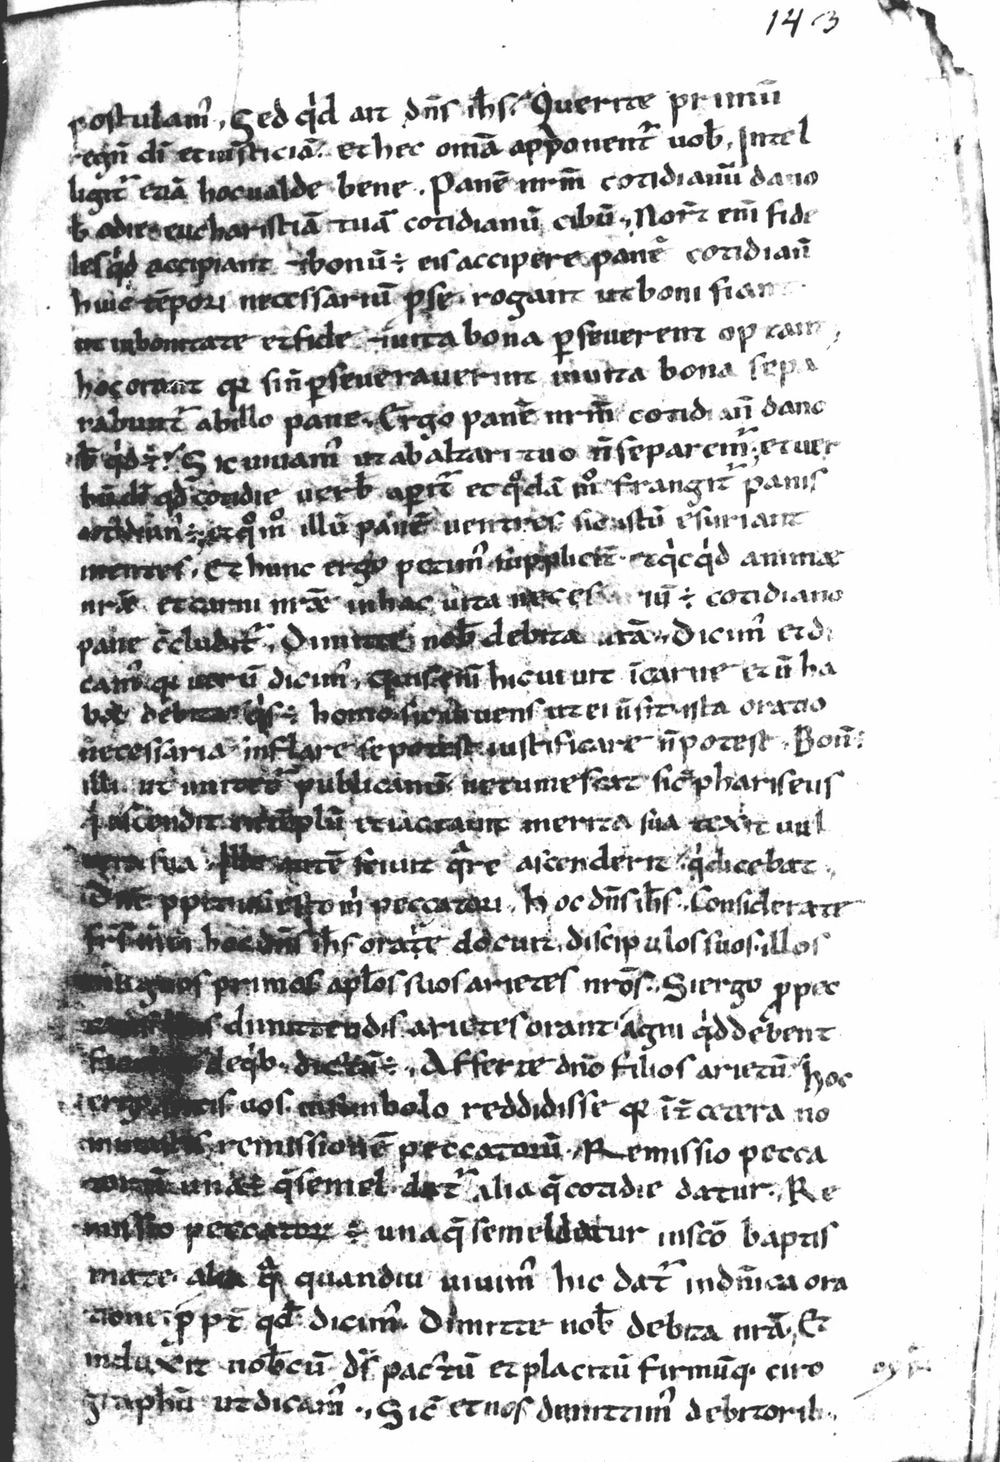 143
postulam̄. Sed qd ait dn̄s ih̄s. Querite primū
regn̄ dī et iusticiā. et hec om̄ia apponent̄ uob̄. Intel
ligit̄ etiā hoc ualde bene. Panē nr̄m cotidianū da no
b̄ odie. eucharistiā tuā cotidianū cibū. Nor̄t eni fide
les qd accipiant. bonū ÷ eis accipere panē cotidian̄
huic tēpori necessariū. p se rogant ut boni fiant
ut in bonitate et fide. uita bona pseuerent optant,
hoc orant q̄ si n̄ pseuerauerint in uita bona sepa
rabunt̄ ab illo pane. Ergo panē nr̄m cotidian̄ da no
b̄ qd ÷. Sic uiuam̄ ut ab altari tuo n̄ separem̄. et uer
bū dī qd cotidie uob̄ apit̄ et qdā m̄ frangit̄ panis
cotidian̄ ÷. et qm̄ illū panē uentres sic istū esuriunt
mentes. Et hunc ergo petim̄ suppliciт̄. et qcqd animæ
nr̄æ et carni nr̄æ in hac uita neces iū ÷ cotidiano
pane c̄cludit̄. Dimitte nob̄ debita nr̄a. Dicim̄ et di
cam̄ q̄ uerū dicim̄. Quis eni hic uiuit ī carne et n̄ ha
bet debita. qs ÷ homo sic uiuens ut ei n̄ sit ista oratio
necessaria. inflare se potest iustificare n̄ potest. Bon̄
illi ut imitet̄ publicanū. ne tumescat sic̄ phariseus
q ascendit tēplū et iactauit merita sua texit uul
nera sua. Ille autē sciuit qre ascenderit. q dicebat.
Dn̄e ppitius esto m̄ peccatori. Hoc dn̄s ih̄s. Considerate
fr̄s mei hoc dn̄s ih̄s orare docuit. discipulos suos. illos
magnos primos apl̄os suos arietes nr̄os. Si ergo p pec
catis dimittendis arietes orant. agni qd debent
facere de qb̄. dictū ÷. Afferte dn̄o filios arietū. Hoc
ergo scitis uos in simbolo reddidisse q̄ īt̄ cetera no
minastis remissionē peccatorū. Remissio pecca
torū una ÷ q̄ semel dat̄ alia q̄ cotidie datur. Re
missio peccator̄ ÷ una q̄ semel datur in sc̄o baptis
mate. alia q̄ quandiu uiuim̄ hic dat̄ in dn̄ica ora
tione. p pt̄ qd̄ dicim̄. Dimitte nob̄ debita nr̄a. Et
induxit nob̄ cū dī pactū et placitū firmūq. ciro
graphū ut dicam̄. Sic̄ et nos dimittim̄ debitorib.